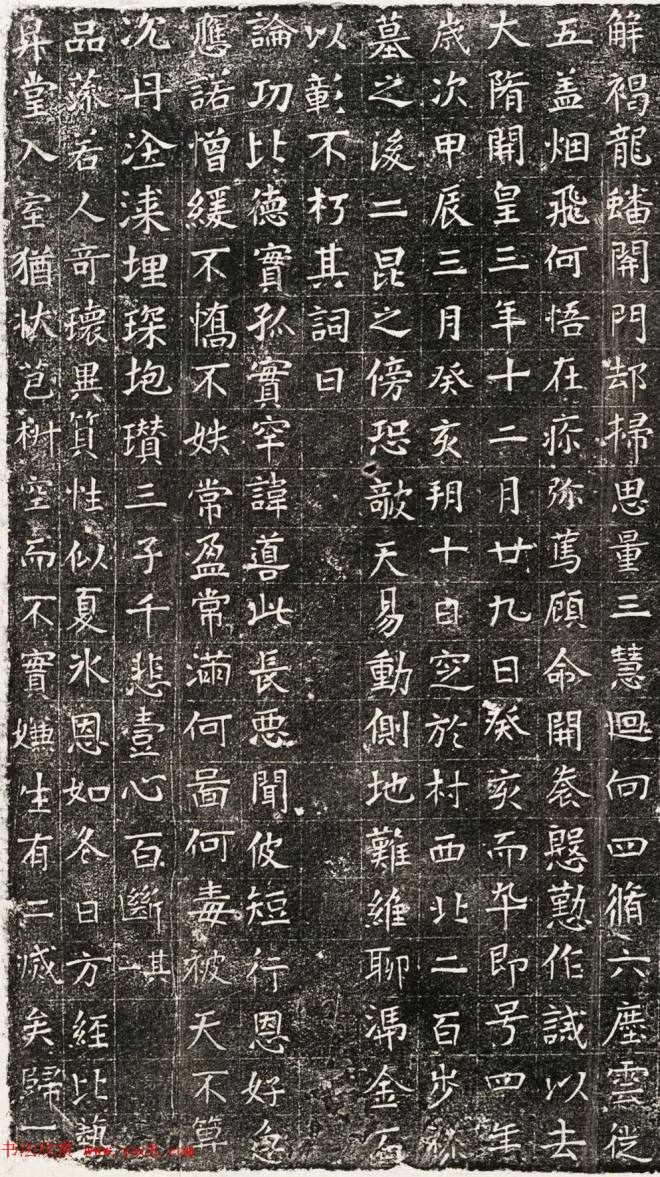 解褐龍蟠開門却掃思量三慧迴向四脩六塵雲從
五盖烟飛何悟在疢弥篤顧命開卷慇懃作誡以去
大隋開皇三年十二月廿九日癸亥而卒即号四年
歲次甲辰三月癸亥朔十日窆於村西北二百步
墓之後二昆之傍恐敧天易動側地難維聊馮金石
以彰不朽其詞曰
論功比德實孤實罕諱善此長惡聞彼短行恩好急
應諾憎緩不憍不妷常盈常滿何啚何毒被天不算
沉丹淦湅埋琛抱瓚三子千悲壹心百斷其一
品藻若人奇瓌異質性似夏氷恩如冬日方經比執
昇堂入室猶杕苞樹空而不實嫌生有二咸矣歸一
书法欣赏 www.yac8.com